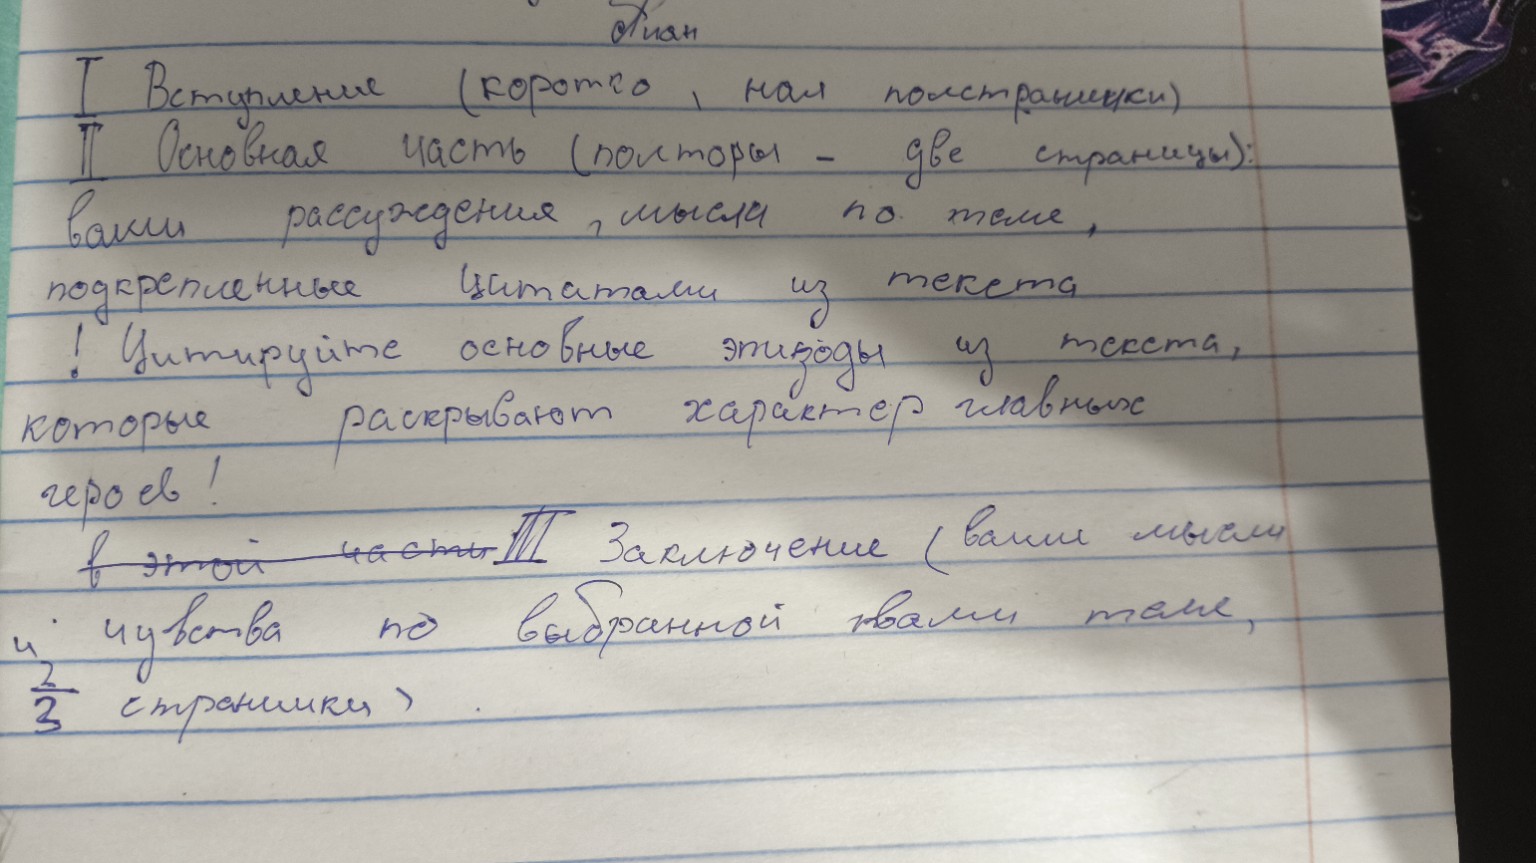 План
I Вступление (коротко, пол полстранички)
II Основная часть (полторы - две страницы):
ваши рассуждения, мысли по теме,
подкрепленные цитатами из текста
! Цитируйте основные эпизоды из текста,
которые раскрывают характер главных
героев!
в этой части III Заключение (ваши мысли
и чувства по выбранной вами теме,
2/3 странички)